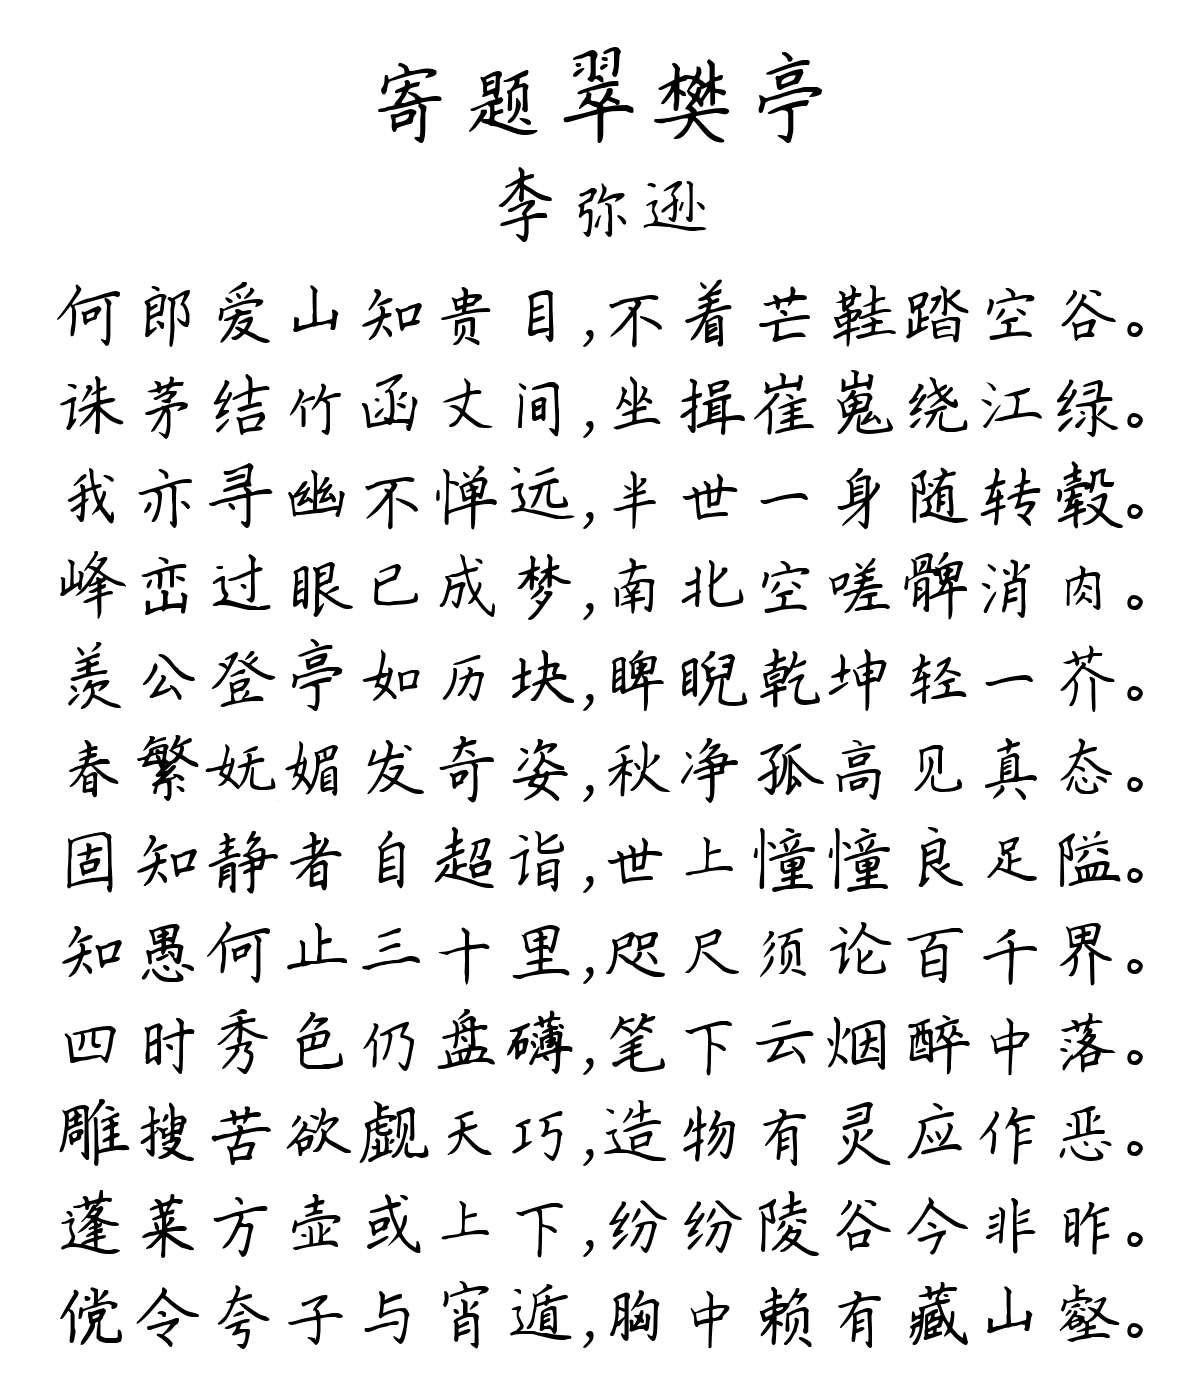 寄题翠樊亭
李弥逊
何郎爱山知贵目,不着芒鞋踏空谷。
诛茅结竹函丈间,坐揖崔嵬绕江绿。
我亦寻幽不惮远,半世一身随转毂。
峰峦过眼已成梦,南北空嗟髀消肉。
羡公登亭如历块,睥睨乾坤轻一芥。
春繁妩媚发奇姿,秋净孤高见真态。
固知静者自超诣,世上憧憧良足隘。
知愚何止三十里,咫尺须论百千界。
四时秀色仍盘礴,笔下云烟醉中落。
雕搜苦欲觑天巧,造物有灵应作恶。
蓬莱方壶或上下,纷纷陵谷今非昨。
傥令夸子与宵遁,胸中赖有藏山壑。